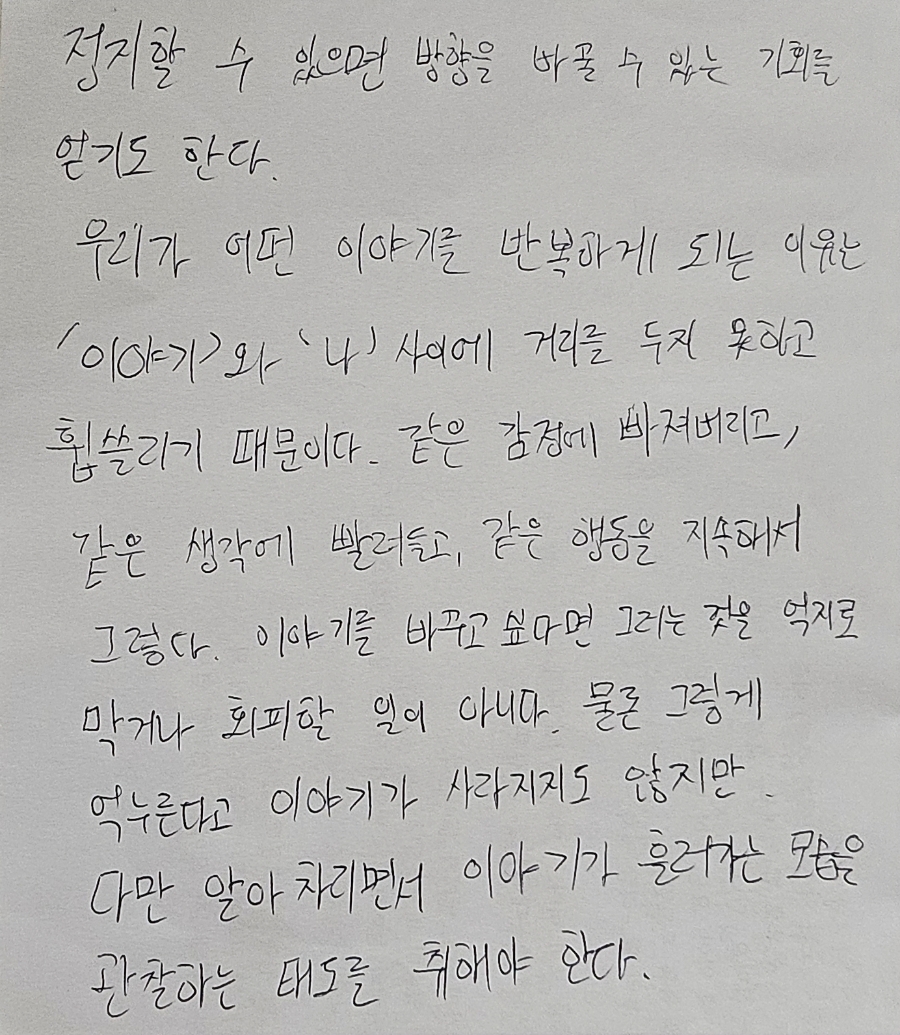 정지할 수 있으면 방향을 바꿀 수 있는 기회를
얻기도 한다.
우리가 어떤 이야기를 반복하게 되는 이유는
'이야기'와 '나' 사이에 거리를 두지 못하고
휩쓸리기 때문이다. 같은 감정에 빠져버리고,
같은 생각에 빨려들고, 같은 행동을 지속해서
그렇다. 이야기를 바꾸고 싶다면 그러는 것을 억지로
막거나 회피할 일이 아니다. 물론 그렇게
억누른다고 이야기가 사라지지도 않지만.
다만 알아차리면서 이야기가 흘러가는 모습을
관찰하는 태도를 취해야 한다.